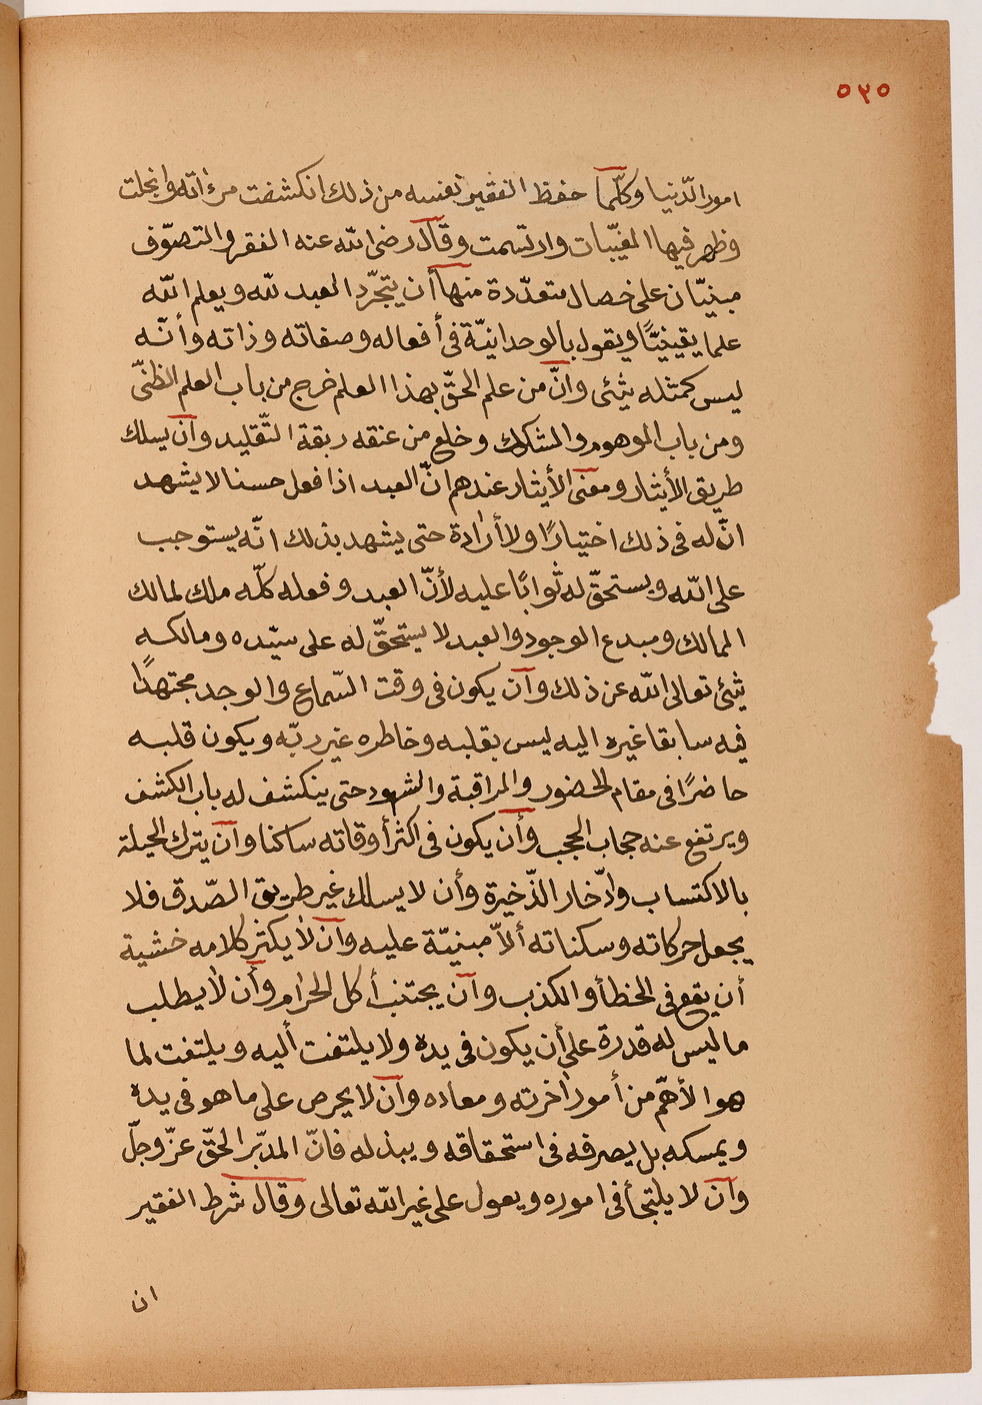 ٥٢٥
امور الدّنيا وكلّما حفظ الفقير نفسه من ذلك انكشفت مرءاته وانجلت
وظهر فيها المغيّبات وارتسمت وقال رضي الله عنه الفقر والتصوّف
مبنيّان على خصال متعدّدة منها أن يتجرّد العبد لله ويعلم الله
علما يقينيًّا ويقول بالوحدانيّة في أفعاله وصفاته وذاته وأنّه
ليس كمثله شئ وانّ من علم الحقّ بهذا العلم خرج من باب العلم الظنّي
ومن باب الموهوم والمشكوك وخلع من عنقه ربقة التّقليد وان يسلك
طريق الأيثار ومعنى الأيثار عندهم انّ العبد اذا فعل حسنا لا يشهد
انّ له في ذلك اختيارًا ولا أرادة حتى يشهد بذلك انّه يستوجب
على الله ويستحقّ له ثوابًا عليه لأنّ العبد وفعله كلّه ملك لمالك
الممالك ومبدع الوجود والعبد لا يستحقّ له على سيّده ومالكه
شئ تعالى الله عن ذلك وان يكون في وقت السّماع والوجد مجتهدًا
فيه سابقا غيره اليه ليس بقلبه وخاطره غير ربّه ويكون قلبه
حاضرًا في مقام الحضور والمراقبة والشهود حتى ينكشف له باب الكشف
ويرتفع عنه حجاب الحجب وأن يكون في اكثر أوقاته ساكنا وان يترك الحيلة
بالاكتساب وادّخار الذّخيرة وأن لا يسلك غير طريق الصّدق فلا
يجعل حركاته وسكناته ألاّ مبنيّة عليه وان لا يكثر كلامه خشية
أن يقع في الخطأ والكذب وان يجتنب أكل الحرام وأن لا يطلب
ما ليس له قدرة على أن يكون في يده ولا يلتفت أليه ويلتفت لما
هو الأهمّ من أمور اخرته ومعاده وان لا يحرص على ما هو في يده
ويمسكه بل يصرفه في استحقاقه ويبذله فانّ المدبّر الحقّ عزّ وجلّ
وان لا يلتجأ في اموره ويعول على غير الله تعالى وقال شرط الفقير
ان